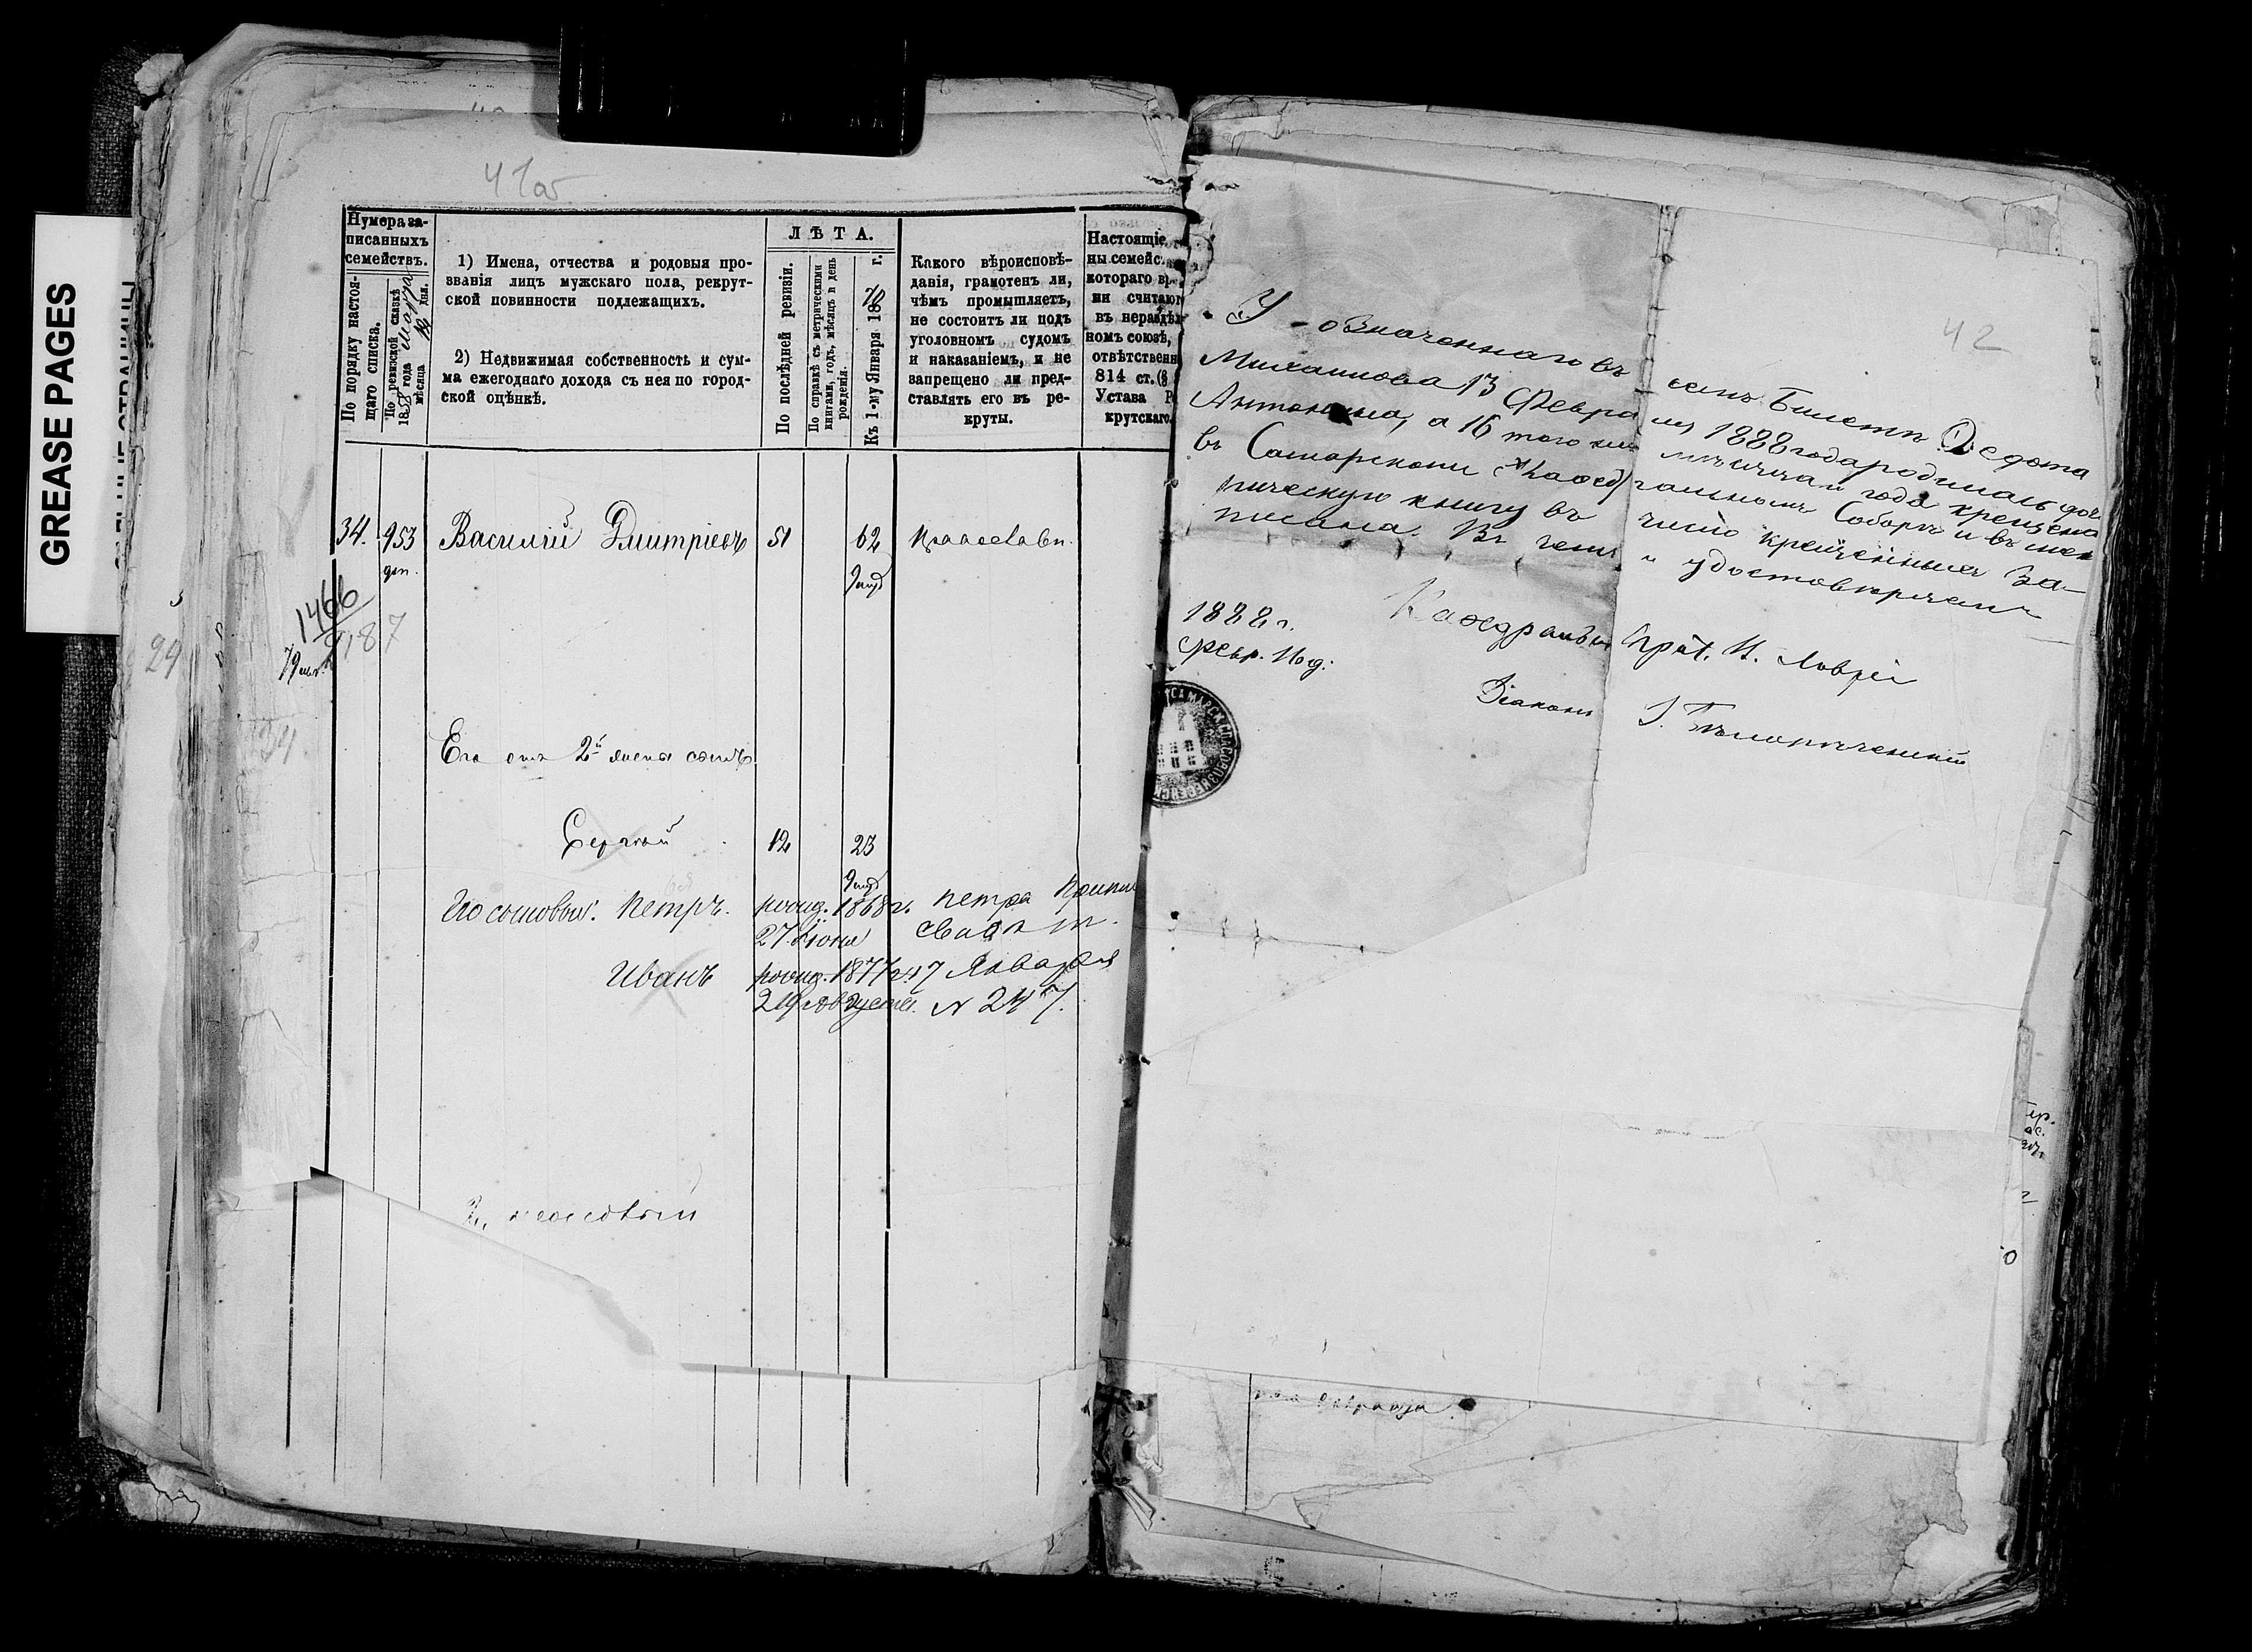 GREASE PAGES
41об
Нумера за-
писанныхъ
семействъ.
По порядку настоя-
щаго списка.
По ревизской сказкѣ
1858 года Марта
мѣсяца 12 дня.
1) Имена, отчества и родовыя про-
званія лицъ мужскаго пола, рекрут-
ской повинности подлежащихъ.
2) Недвижимая собственность и сум-
ма ежегоднаго дохода съ нея по город-
ской оцѣнкѣ.
ЛѢТА.
По послѣдней ревизіи.
По справкѣ съ метрическими
книгами, годъ, мѣсяцъ и день
рожденія.
Къ 1-му Января 1870 г.
Какого вѣроисповѣ-
данія, грамотенъ ли,
чѣмъ промышляетъ,
не состоитъ ли подъ
уголовномъ судомъ
и наказаніемъ, и не
запрещено ли пред-
ставлять его въ ре-
круты.
Настоящіе
ны семейс
котораго вр
ни считают
въ нераздѣл
номъ союзѣ,
отвѣтственн
814 ст. (§
Устава Р
крутскаго.
34. 953 Василій Дмитріевъ 51 62 Православн.
1466
9187
29
34
Его отъ 2й жены сынъ
Сергѣй 12 23
Его сыновья: Петръ. рожд. 1868 г. Петра
27 Іюня
Иванъ рожд. 1877 г. 7 Января
29 Августа. N 247.
42
У означеннаго въ семъ Билетѣ Федота
Михаилова 13 Февраля 1888 года родилась дочь
Антонина, а 16 того же мѣсяца и года крещена
въ Самарскомъ Каѳедральномъ Соборѣ и въ мет
рическую книгу въ число крещенныхъ за-
писана. Въ чемъ и удостовѣряемъ
1888 г.
Февр. 16 д.
Каѳедральн Прот. И. Лаврс
Діаконъ І.